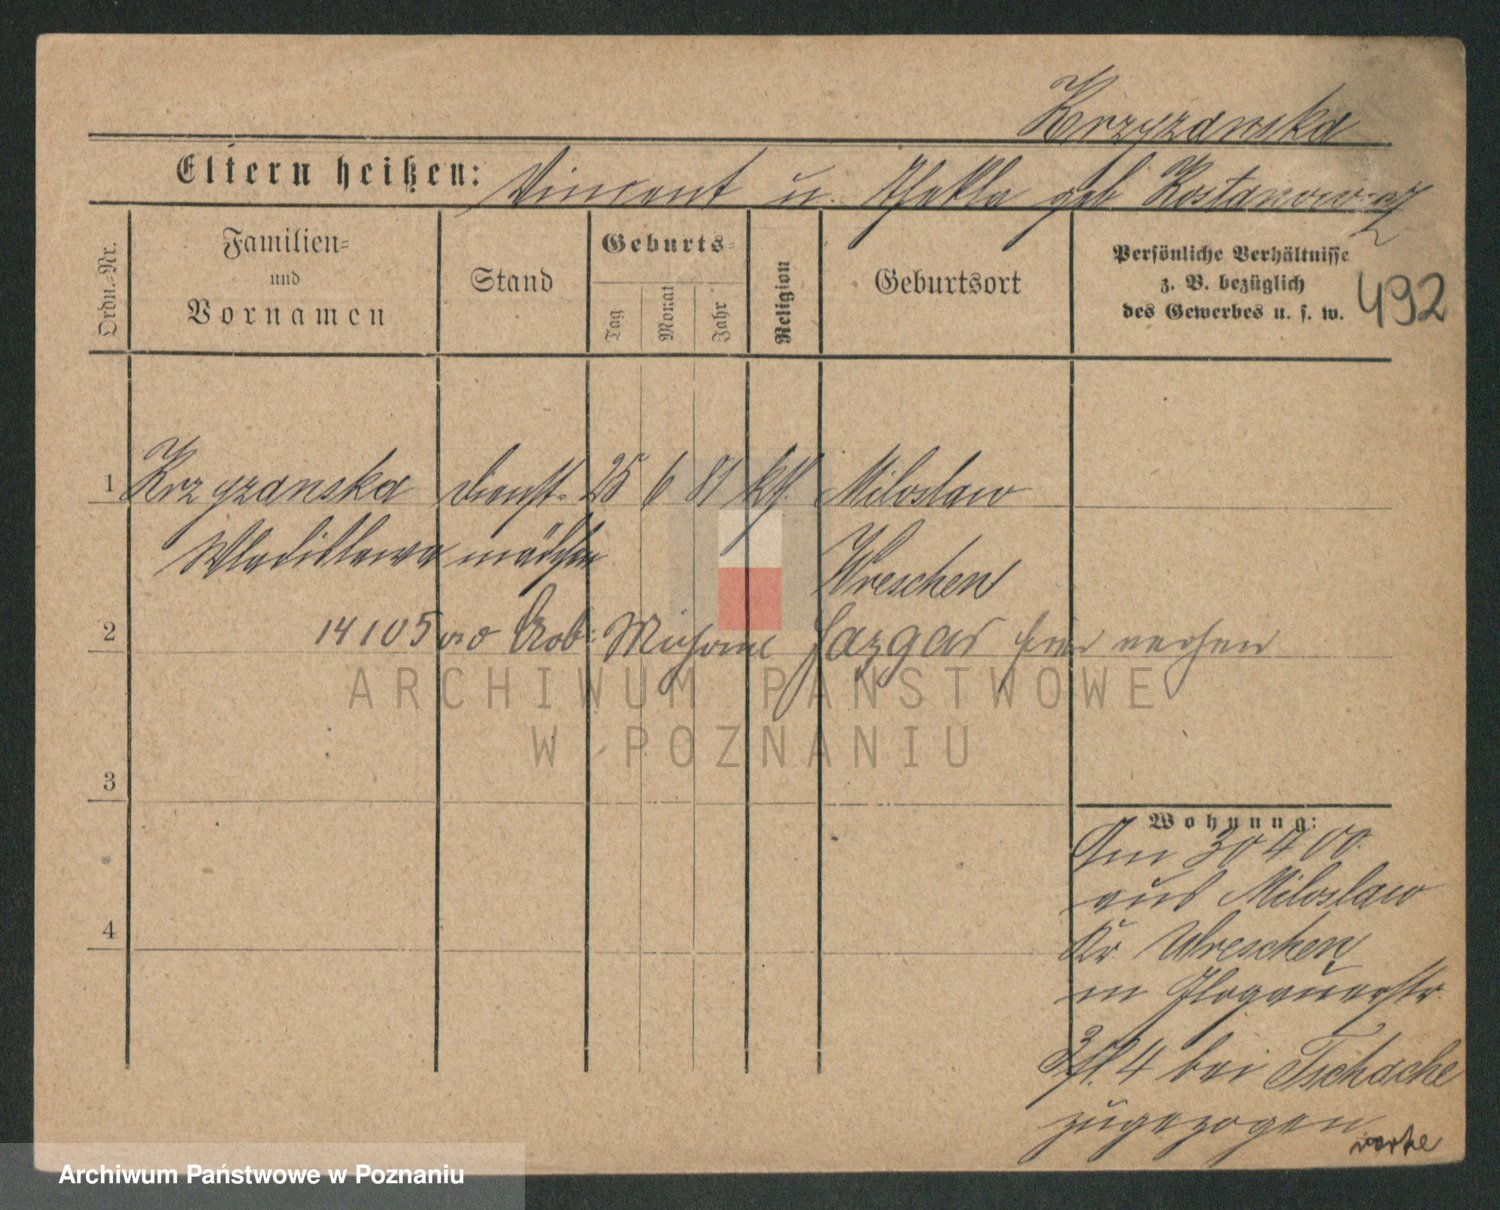 Krzyzanska
Eltern heißen: Vincent u. Thekla geb Kostanowicz
Ordn.-Nr.
Familien-
und
Vornamen
Stand
Geburts-
Tag
Monat
Jahr
Religion
Geburtsort
Persönliche Verhältnisse
z. B. bezüglich
des Gewerbes u. s. w.
492
1 Krzyzanska Dienst- 25 6 81 kth. Miloslaw
Wladislawa mädchen Wreschen
2 14105 Arb. Michael Jazgar hier
3
4
Wohnung:
Am 30 4 00
aus Miloslaw
Kr. Wreschen
in Glogauerstr
3/4 bei Tschache
zugezogen
ARCHIWUM PAŃSTWOWE
W POZNANIU
Archiwum Państwowe w Poznaniu